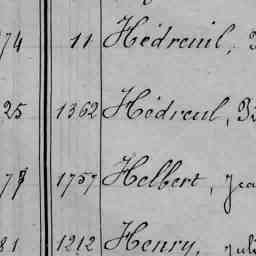 74 11 Hédreuil,
25 1362 Hédreul,
78 1757 Helbert, Jea
81 1212 Henry, Juli